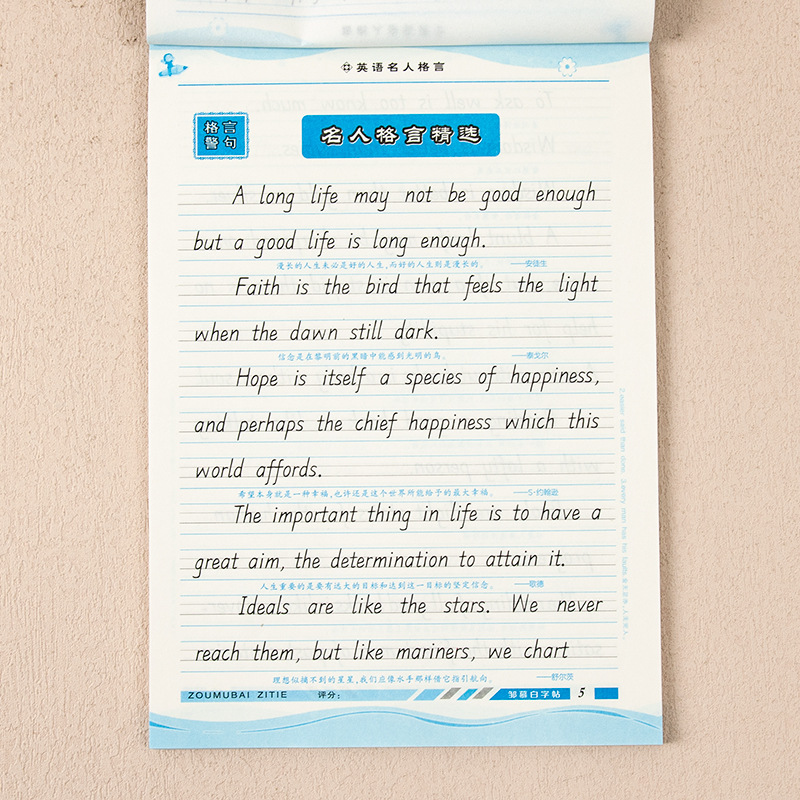 英语名人格言
格言
警句
名人格言精选
A long life may not be good enough
but a good life is long enough.
漫长的人生未必是好的人生,而好的人生则是漫长的。 ——安徒生
Faith is the bird that feels the light
when the dawn still dark.
信念是在黎明前的黑暗中能感到光明的鸟。 ——泰戈尔
Hope is itself a species of happiness,
and perhaps the chief happiness which this
world affords.
希望本身就是一种幸福,也许还是这个世界所能给予的最大幸福。 ——S·约翰逊
The important thing in life is to have a
great aim, the determination to attain it.
人生重要的是要有远大的目标和达到这一目标的坚定信念。 ——歌德
Ideals are like the stars. We never
reach them, but like mariners, we chart
理想似摘不到的星星,我们应像水手那样借它指引航向。 ——舒尔茨
2.easier said than done. 3.every man has his faults.
ZOUMUBAI ZITIE 评分: 邹慕白字帖 5